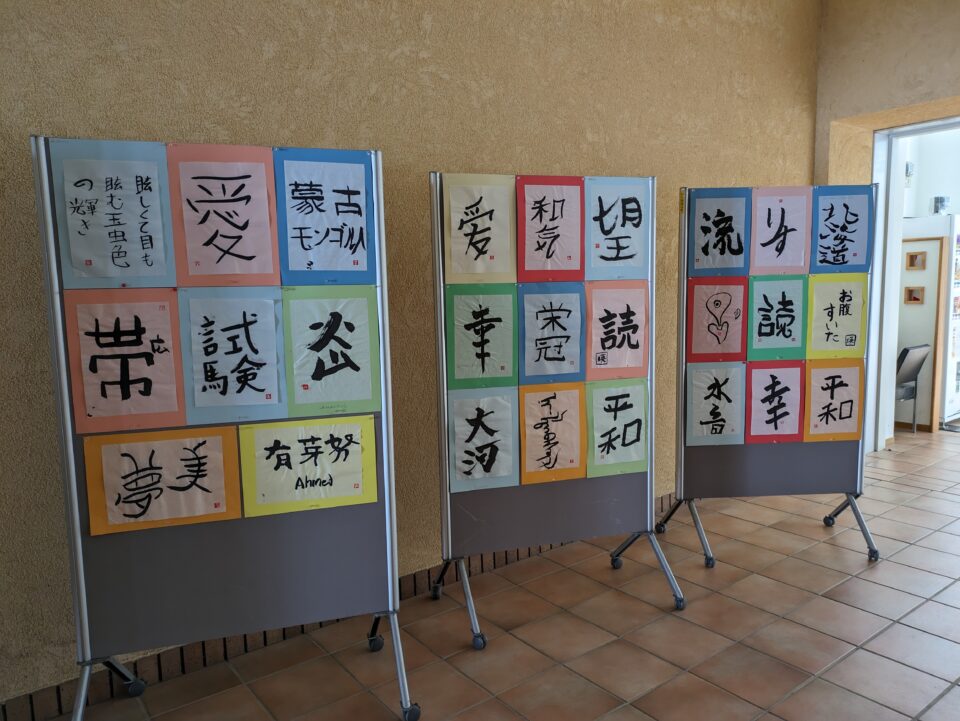 眩しくて目も
眩む玉虫色
の輝き
愛
蒙古
モンゴル
帯広
試験
火山
夢美
有芽努
Ahmed
愛
和気
望
幸
栄冠
読
大河
平和
流
りす
北海道
読
お腹
すいた
水音
幸
平和